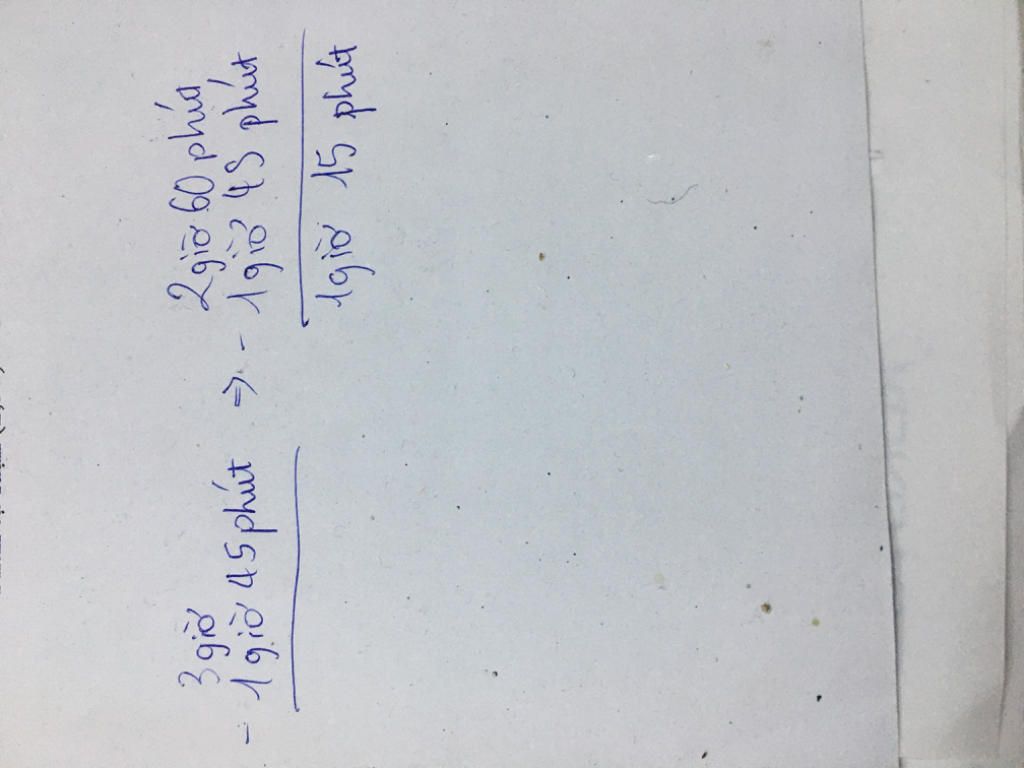 3 giờ
- 1 giờ 45 phút
⇒
2 giờ 60 phút
- 1 giờ 45 phút
1 giờ 15 phút